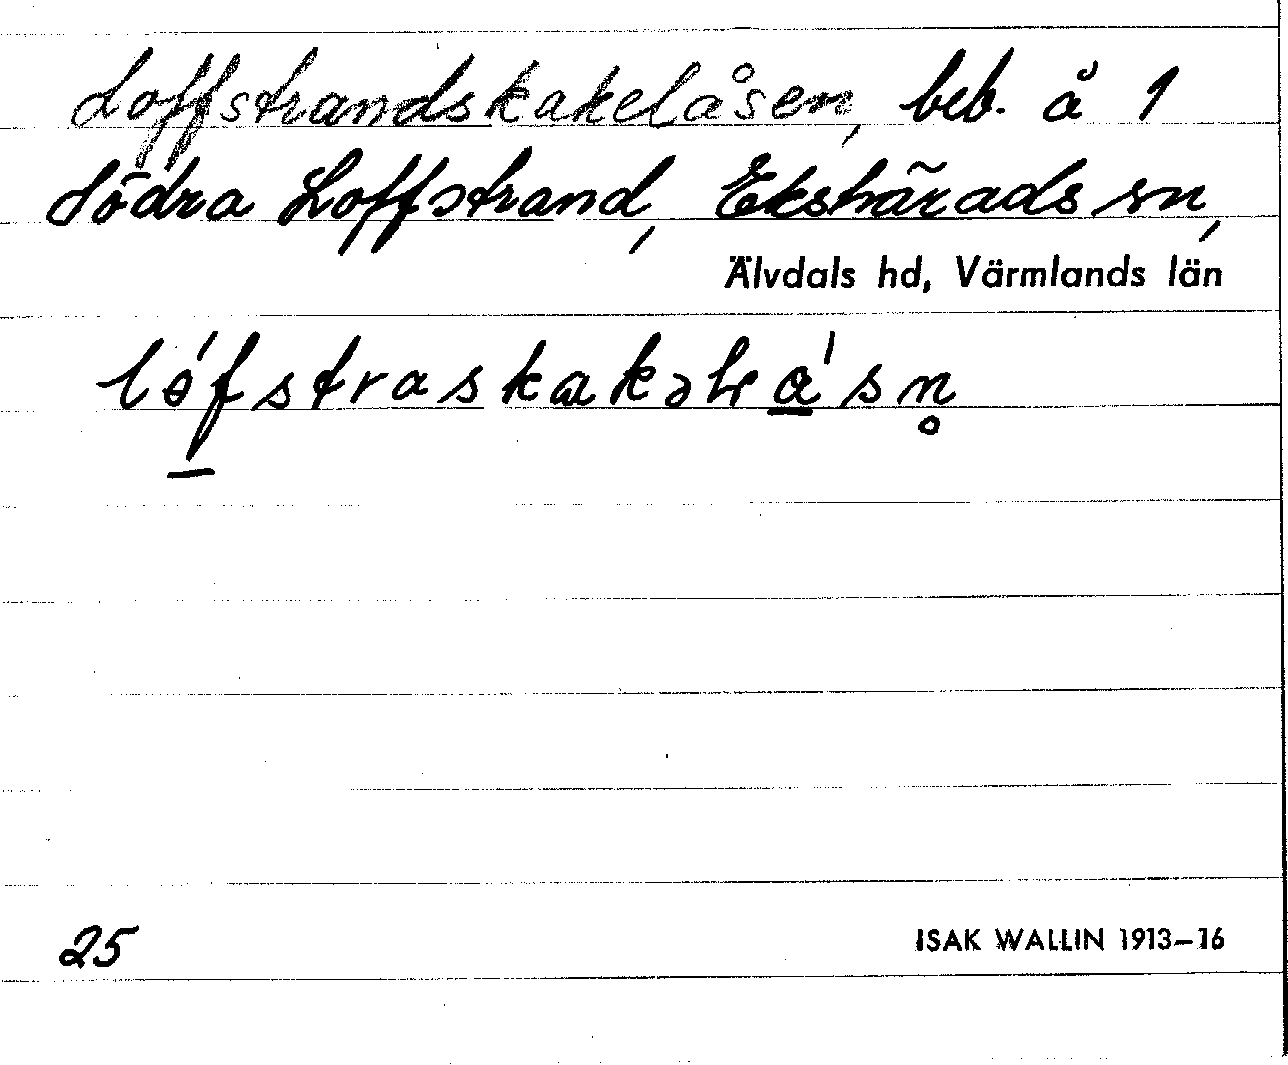 Loffstrandskakelåsen, beb. å 1
Södra Loffstrand, Ekshärads sn,
Älvdals hd, Värmlands län
25
ISAK WALLIN 1913–16